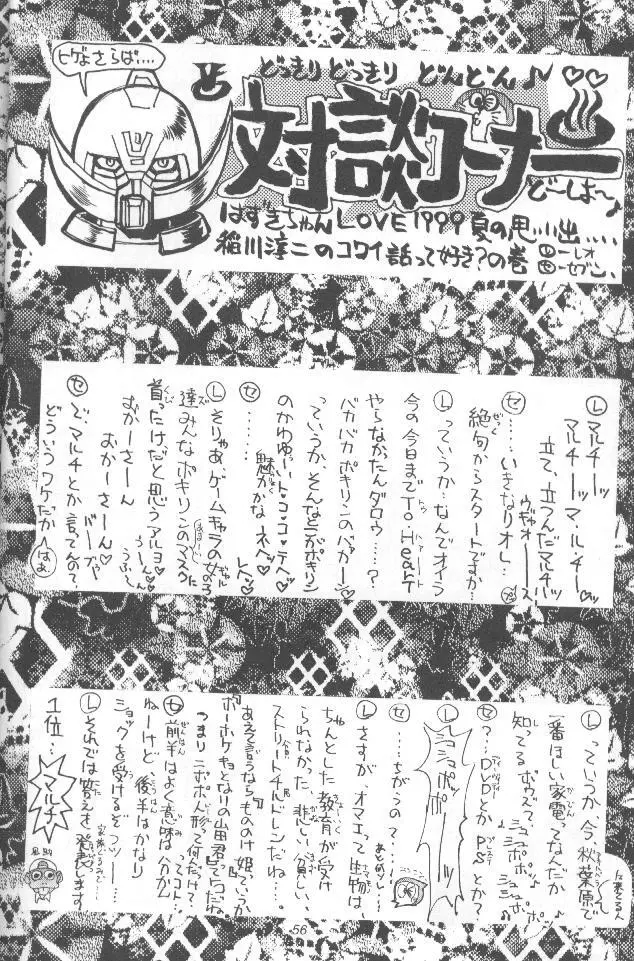 ヒゲよさらば….
どっきりどっきり どんどん♪
対談コーナー
どーしぱ〜♪
はずきちゃんLOVE1999夏の思い出….
稲川淳二のコワイ話って好き?の巻
Ⓛ=レオ
セ=セブン
Ⓛ マルチーッ マルチーッ マ・ル・チーッ♡
立て、立つんだマルチッ
ウギャオーース
セ ……いきなりオレ…
絶句からスタートですか…
Ⓛ っていうか、なんでオイラ
今の今日までTo Heart
やらなかったんダロウ……?
バカバカポキリンのバカーン♡
っていうか、そんなとこがポキリン
のかわゆーい、ト・コ・ロ・テ・ヘ♡
魅力かな ネヘ♡
セ ……。
Ⓛ そりゃあ、ゲームキャラの女の子
達みんなポキリンのマスクに
首ったけだと思うアルヨ♡
おかーさーん
おかーさーん♡
セ で、マルチとか言ってんので、
どういうワケだか
はあ
Ⓛ っていうか今秋葉原で
一番ほしい家電ってなんだか
知ってるボウズ?
セ ?…DVDとか PSとか?
Ⓛ シュシュポッポー
セ ……ちがうので……
Ⓛ さすが、オマエって生物は、
ちゃんとした教育が受け
られなかった、悲しい貧しい
ストリートチルドレンだね…。
あえて言うなら『もののけ姫』ていうか
『ホーホケキョとなりの山田君』てコトだね。
つまりニポポ人形って何なんだっけ?
ってコト…
セ 前半はよく意味が分かん
ねーけど 後半はかなり
ショックを受けるぞっッー……
Ⓛ それでは答えを、発表します
1位… マルチ
56